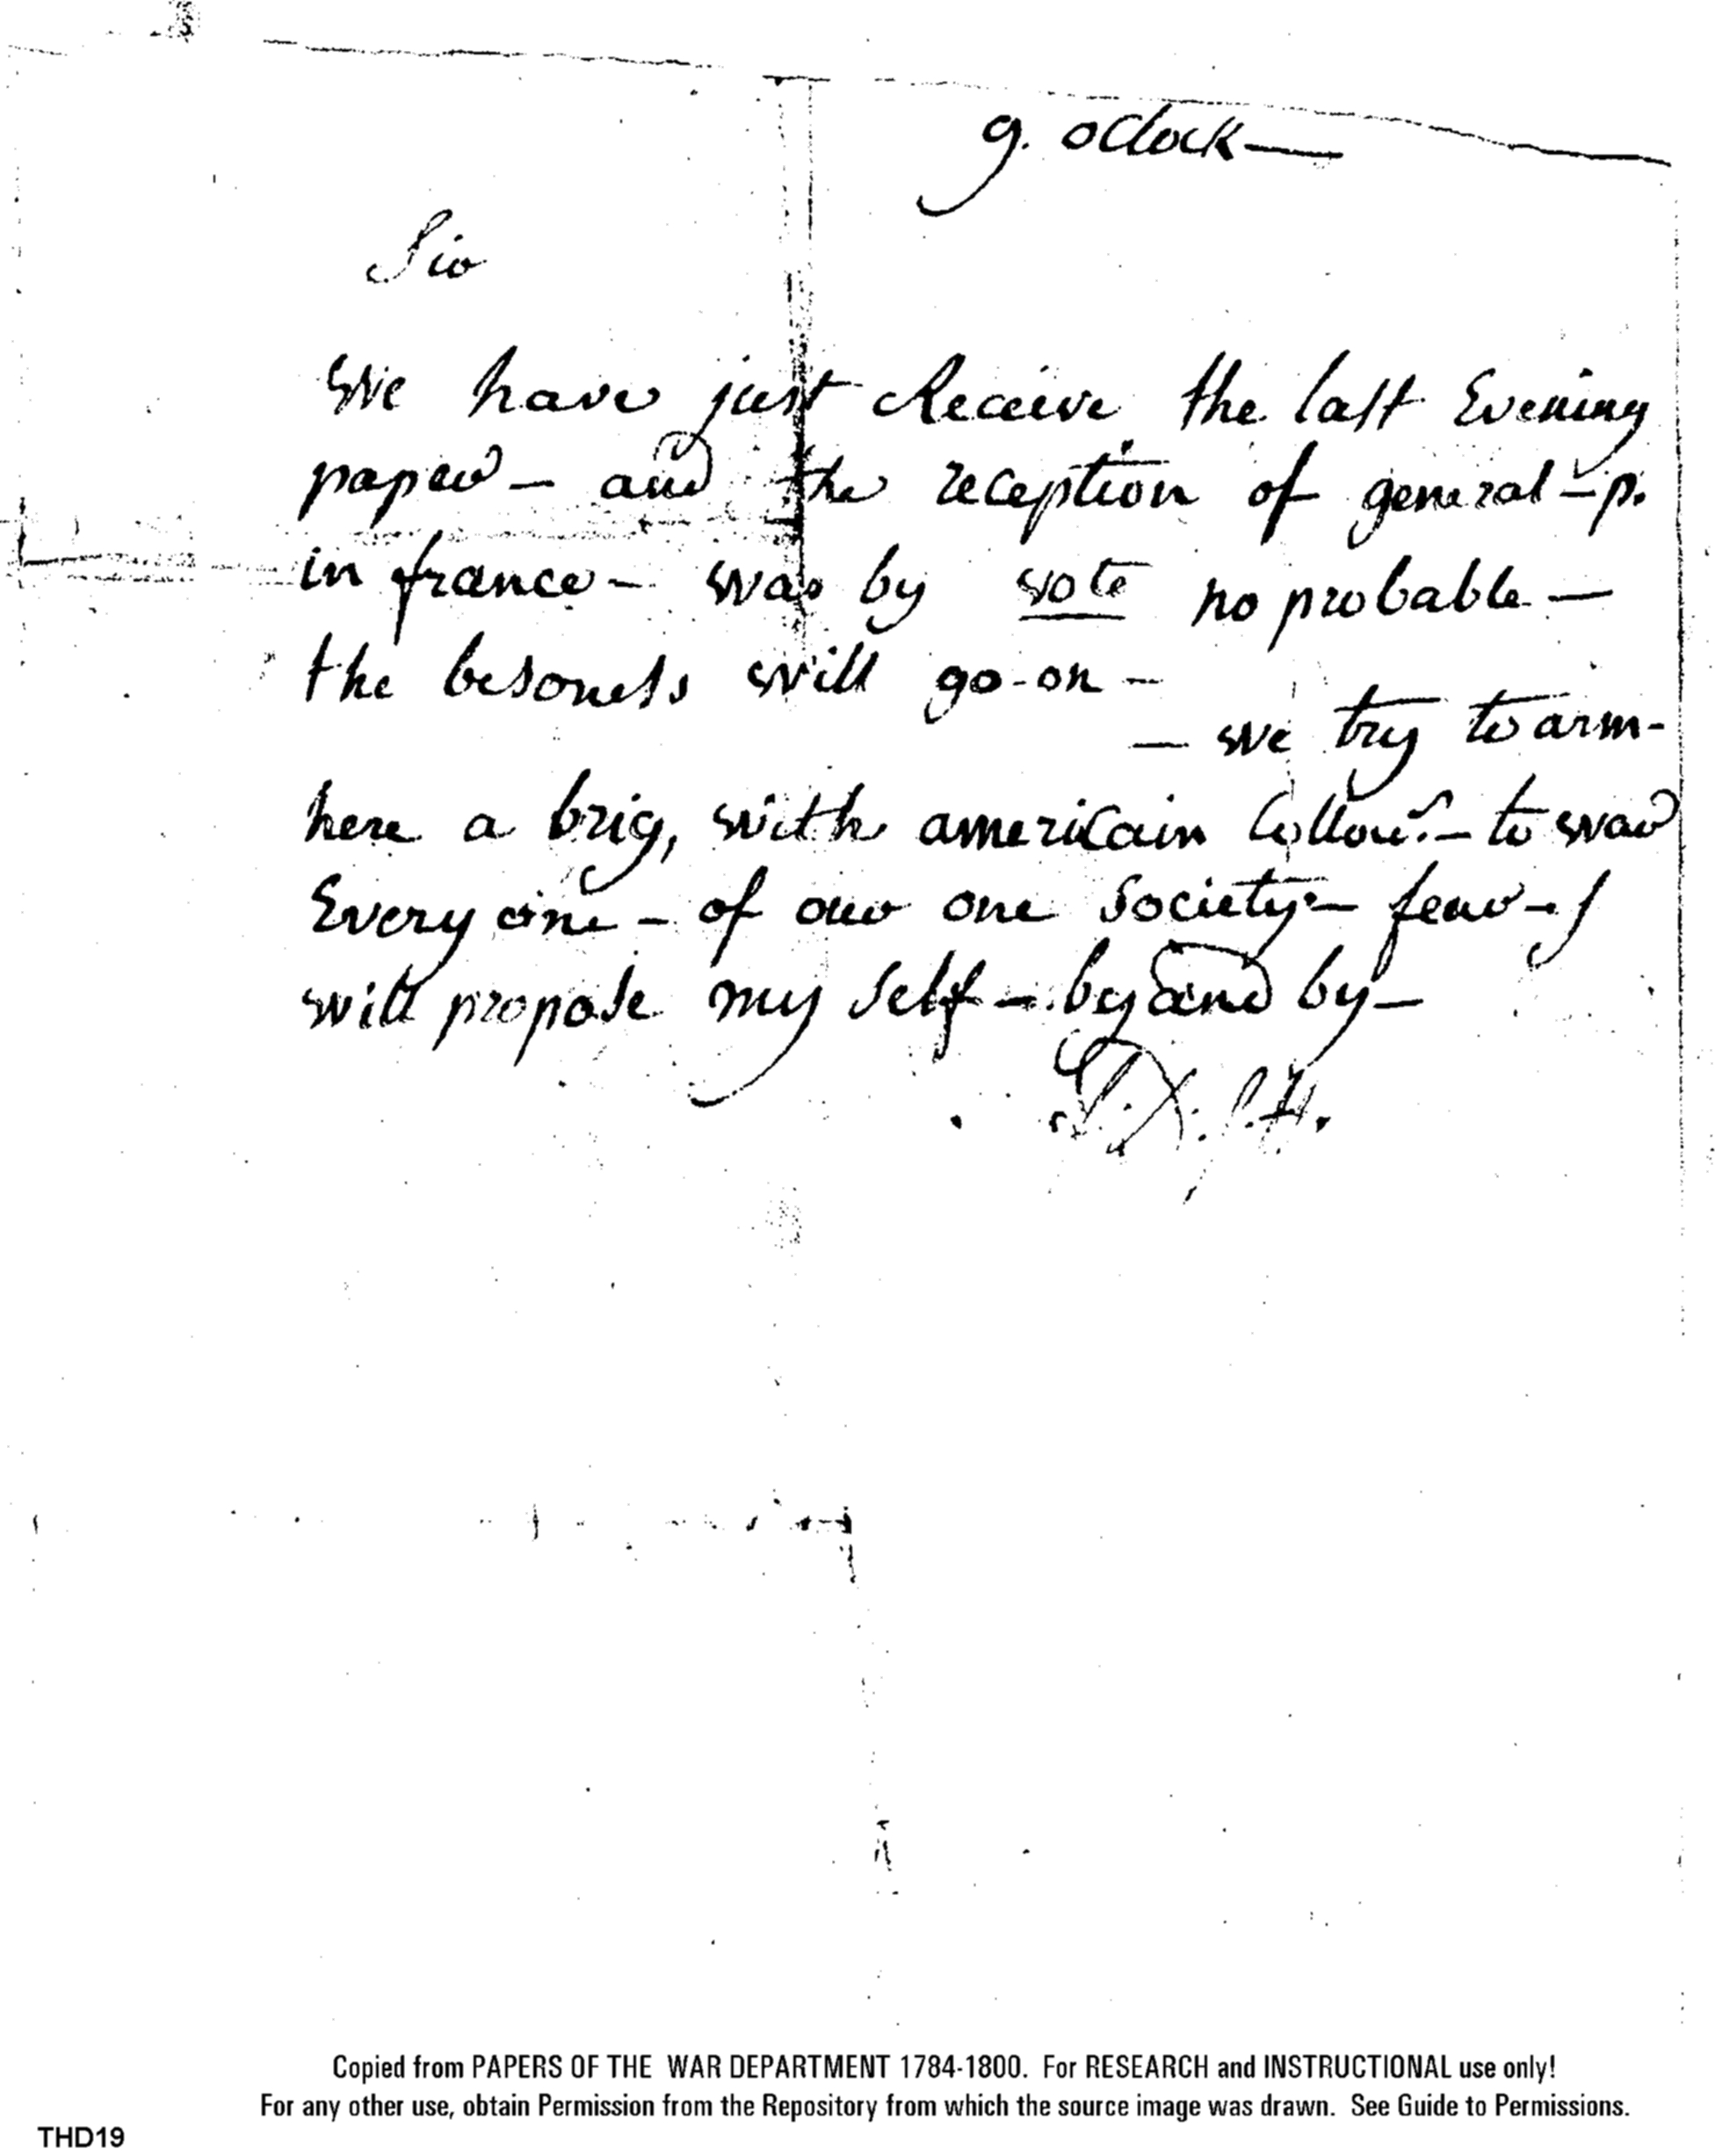 9. oClock —
Sir
We have just Receive the last Evening
paper — and the reception of general — p.
in france — was by vote no probable —
the besoness will go-on —
— we try to arm-
here a brig, with americain Collour — to war
Every one — of our one society — fear — I
will propose my self — by and by —
Copied from PAPERS OF THE WAR DEPARTMENT 1784-1800. For RESEARCH and INSTRUCTIONAL use only!
For any other use, obtain Permission from the Repository from which the source image was drawn. See Guide to Permissions.
THD19